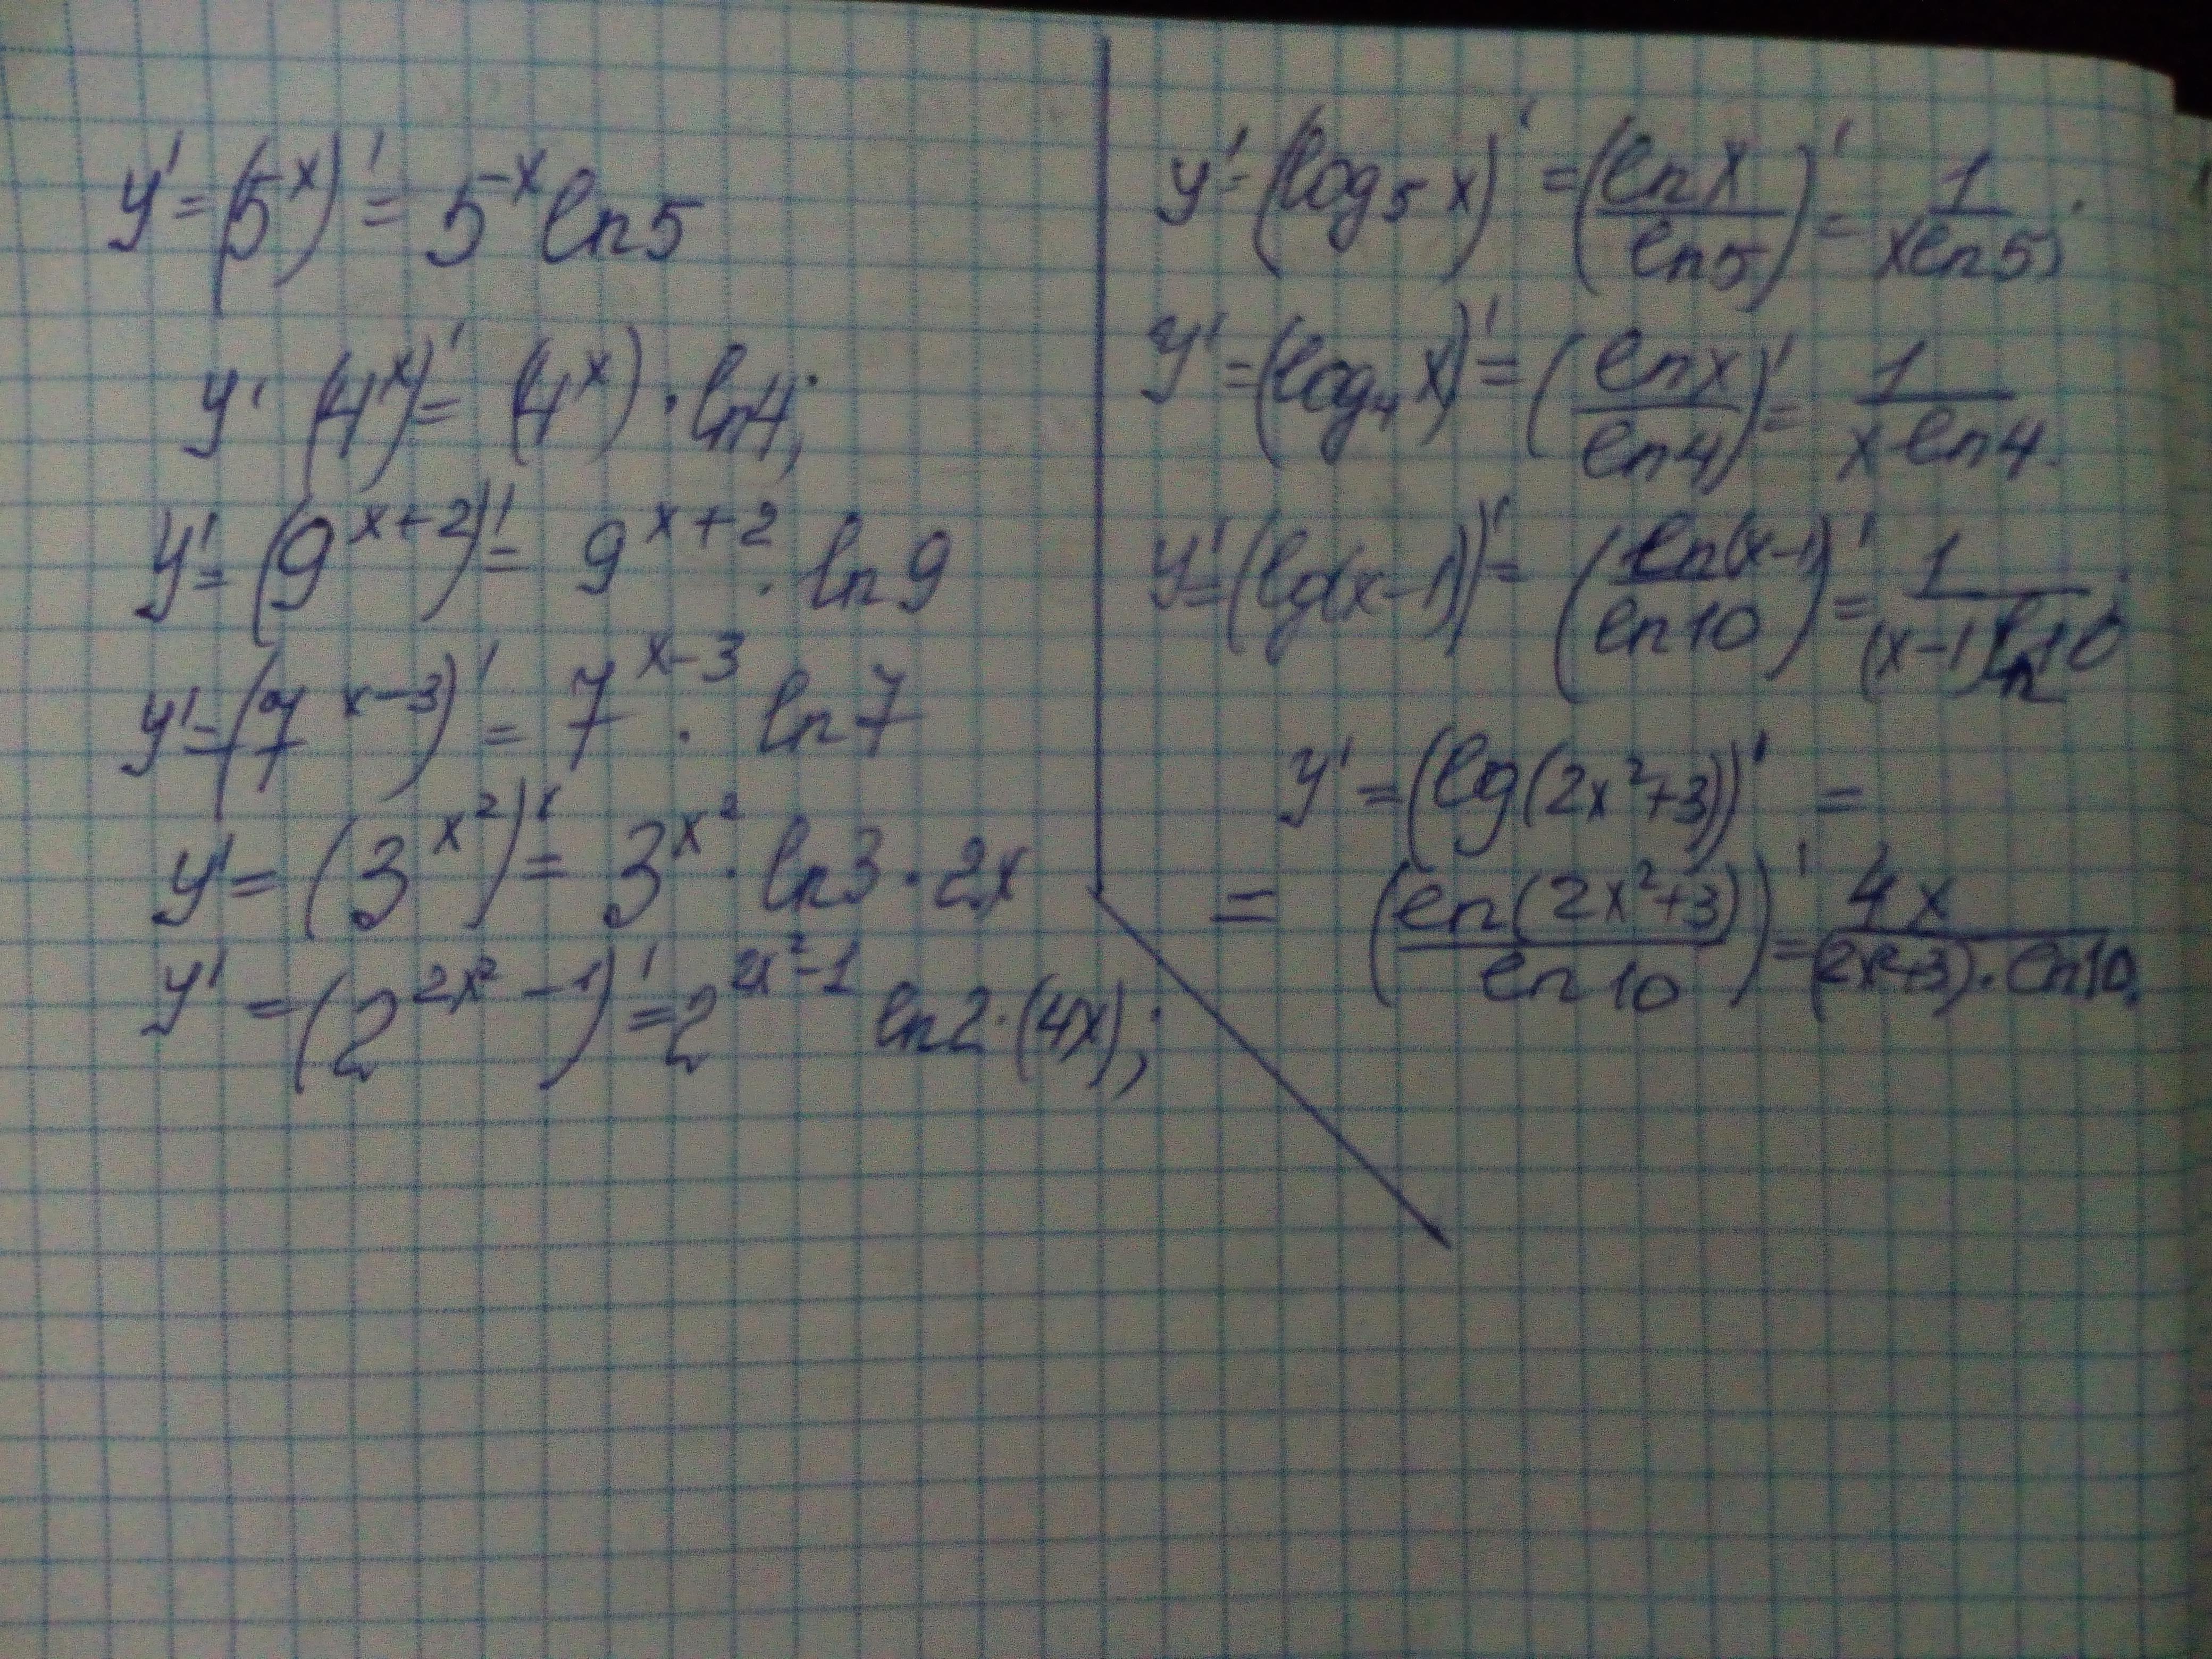 y' = (5^x)' = 5^x ln5
y' (4^x)' = (4^x) · ln4;
y' = (9^{x+2})' = 9^{x+2} · ln9
y' = (7^{x-3})' = 7^{x-3} · ln7
y' = (3^{x^2})' = 3^{x^2} · ln3 · 2x
y' = (2^{2x^2 - 1})' = 2^{2x^2-1} ln2 · (4x);
y' = (log_5 x)' = (ln x / ln 5)' = 1 / (x ln 5);
y' = (log_4 x)' = (ln x / ln 4)' = 1 / (x ln 4).
y' = (lg(x-1))' = (ln(x-1) / ln 10)' = 1 / ((x-1) ln 10)
y' = (lg(2x^2+3))' =
= (ln(2x^2+3) / ln 10)' = 4x / ((2x^2+3) · ln 10).